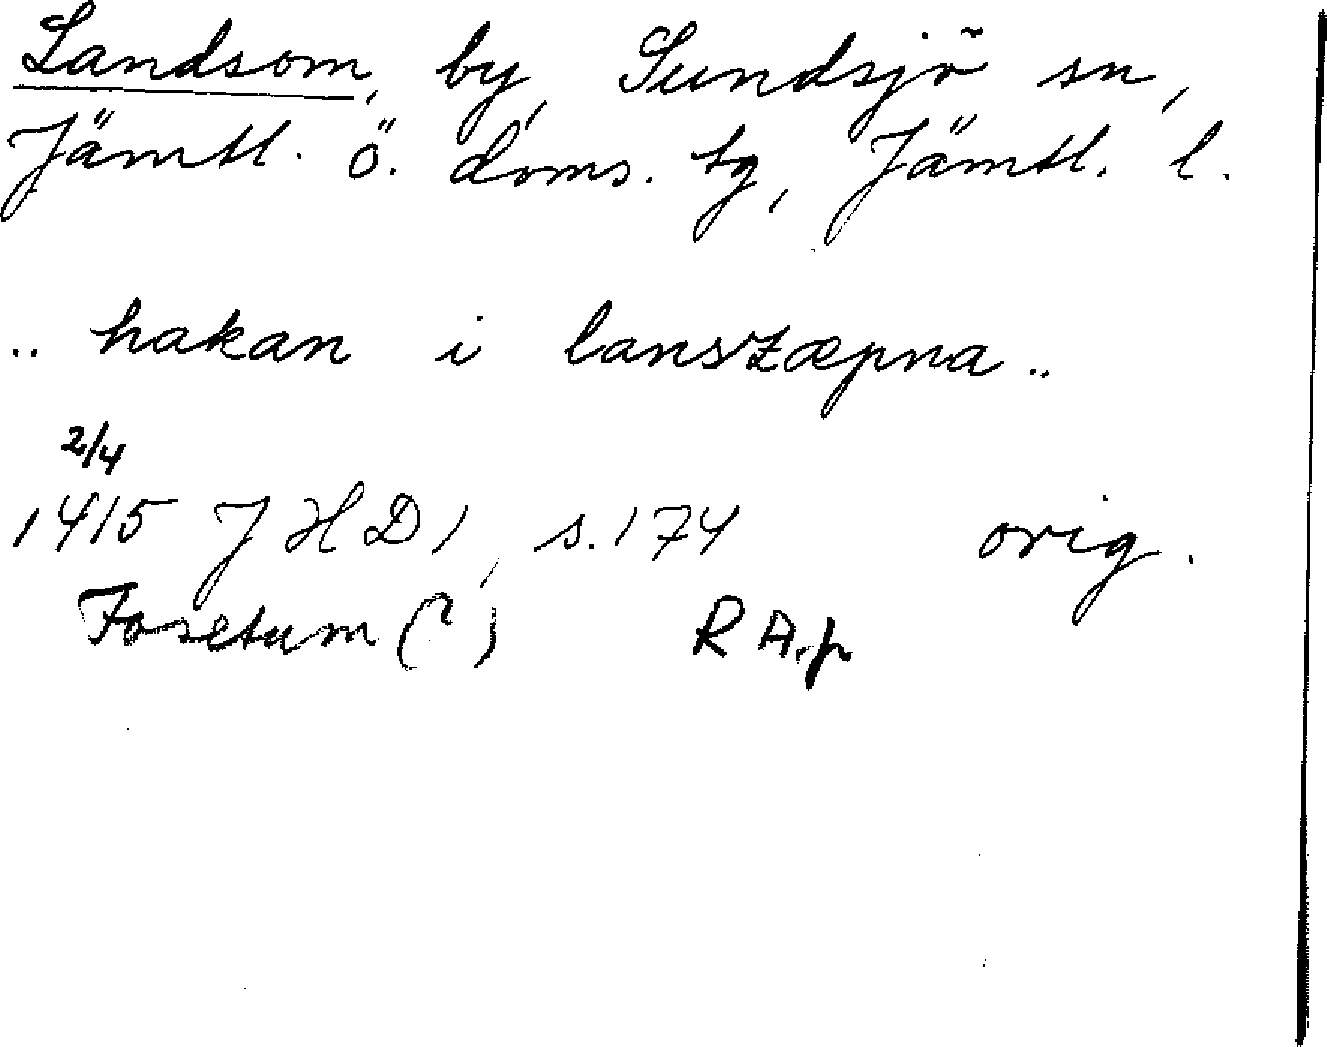 Landsom, by, Sundsjö sn,
Jämtl. ö. doms. tg, Jämtl. l.
.. hakan i lanszæpna ..
2/4
1415 JHD1, s.174 orig.
Fosetum (?) RA.p